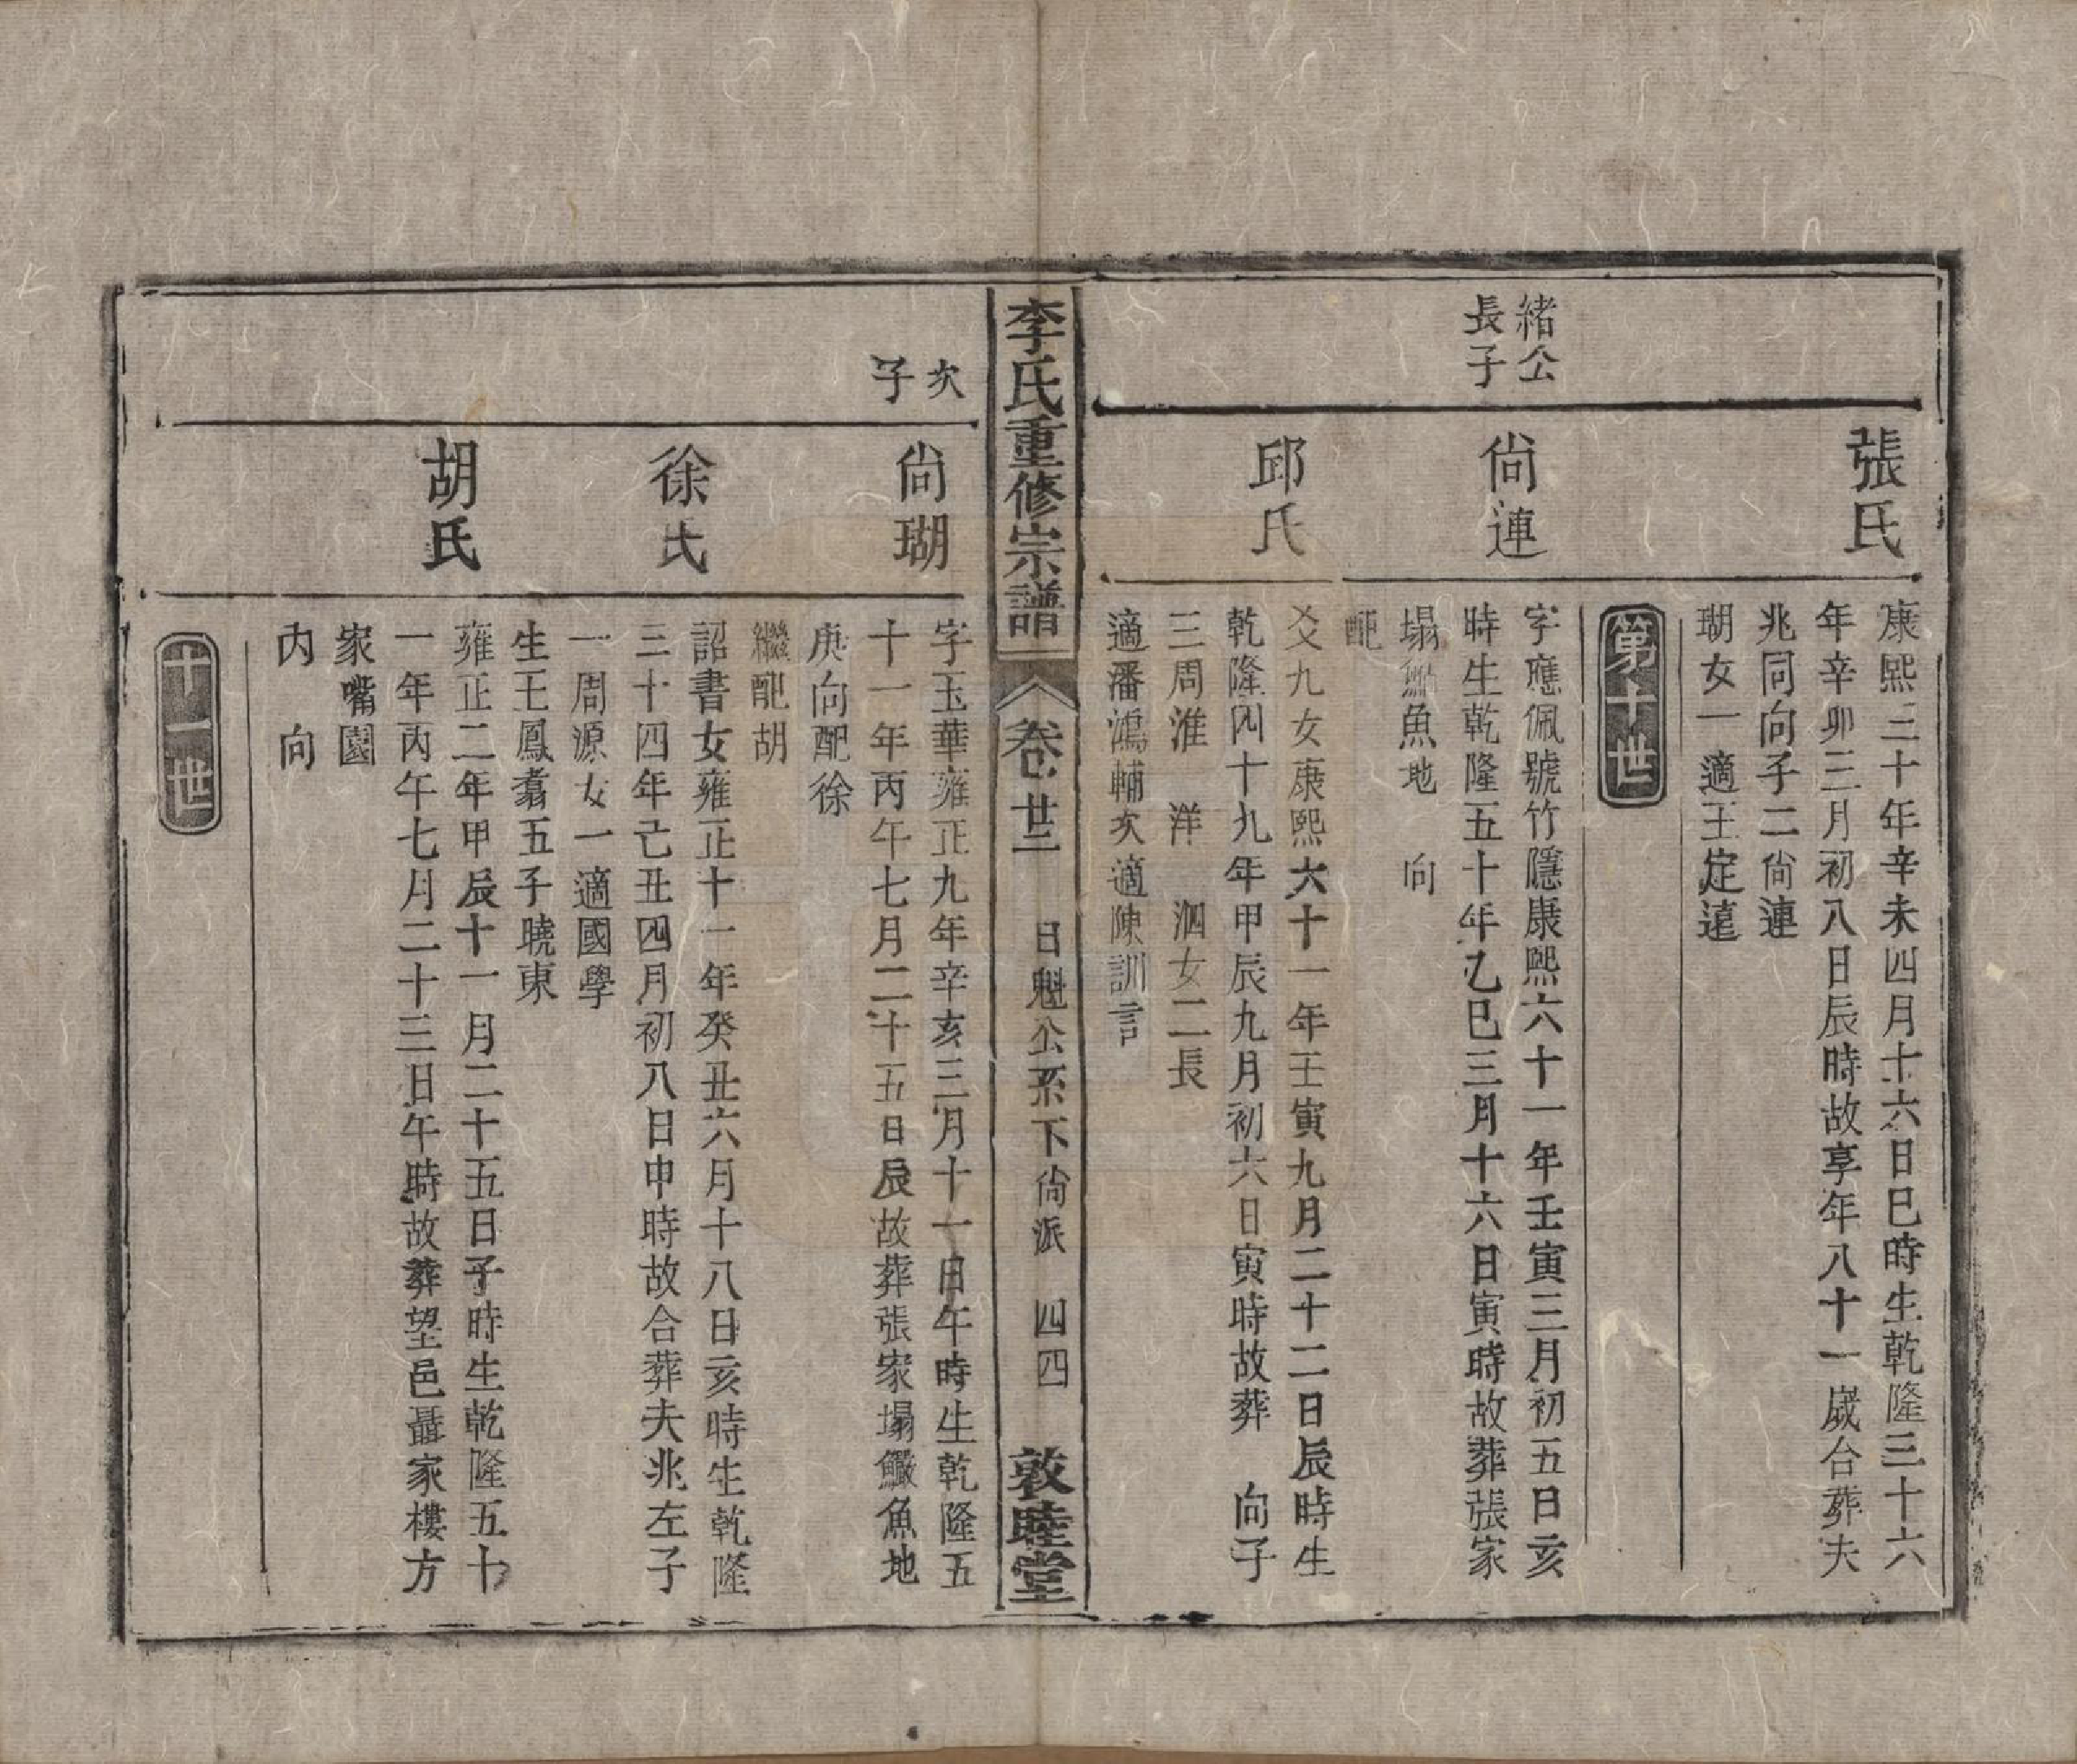 張氏
康熙三十年辛未四月十六日巳時生乾隆三十六
年辛卯三月初八日辰時故享年八十一歲合葬夫
兆同向子二尙連
瑚女一適王定遠
第十世
緒公
長子
尙連
字應佩號竹隱康熙六十一年壬寅三月初五日亥
時生乾隆五十年乙巳三月十六日寅時故葬張家
塌魚地 向
配
邱氏
九女康熙六十一年壬寅九月二十二日辰時生
乾隆四十九年甲辰九月初六日寅時故葬 向子
三周淮 洋 泗女二長
適潘鴻輔次適陳訓言
李氏重修宗譜
卷廿三 日魁公系下尙派 四四 敦睦堂
次
子
尙瑚
字玉華雍正九年辛亥三月十一日午時生乾隆五
十一年丙午七月二十五日辰故葬張家塌魚地
庚向配徐
繼配胡
徐氏
詔書女雍正十一年癸丑六月十八日亥時生乾隆
三十四年己丑四月初八日申時故合葬夫兆左子
一周源女一適國學
生王鳳翥五子曉東
胡氏
雍正二年甲辰十一月二十五日子時生乾隆五十
一年丙午七月二十三日午時故葬望邑聶家樓方
家嘴園
内 向
十一世